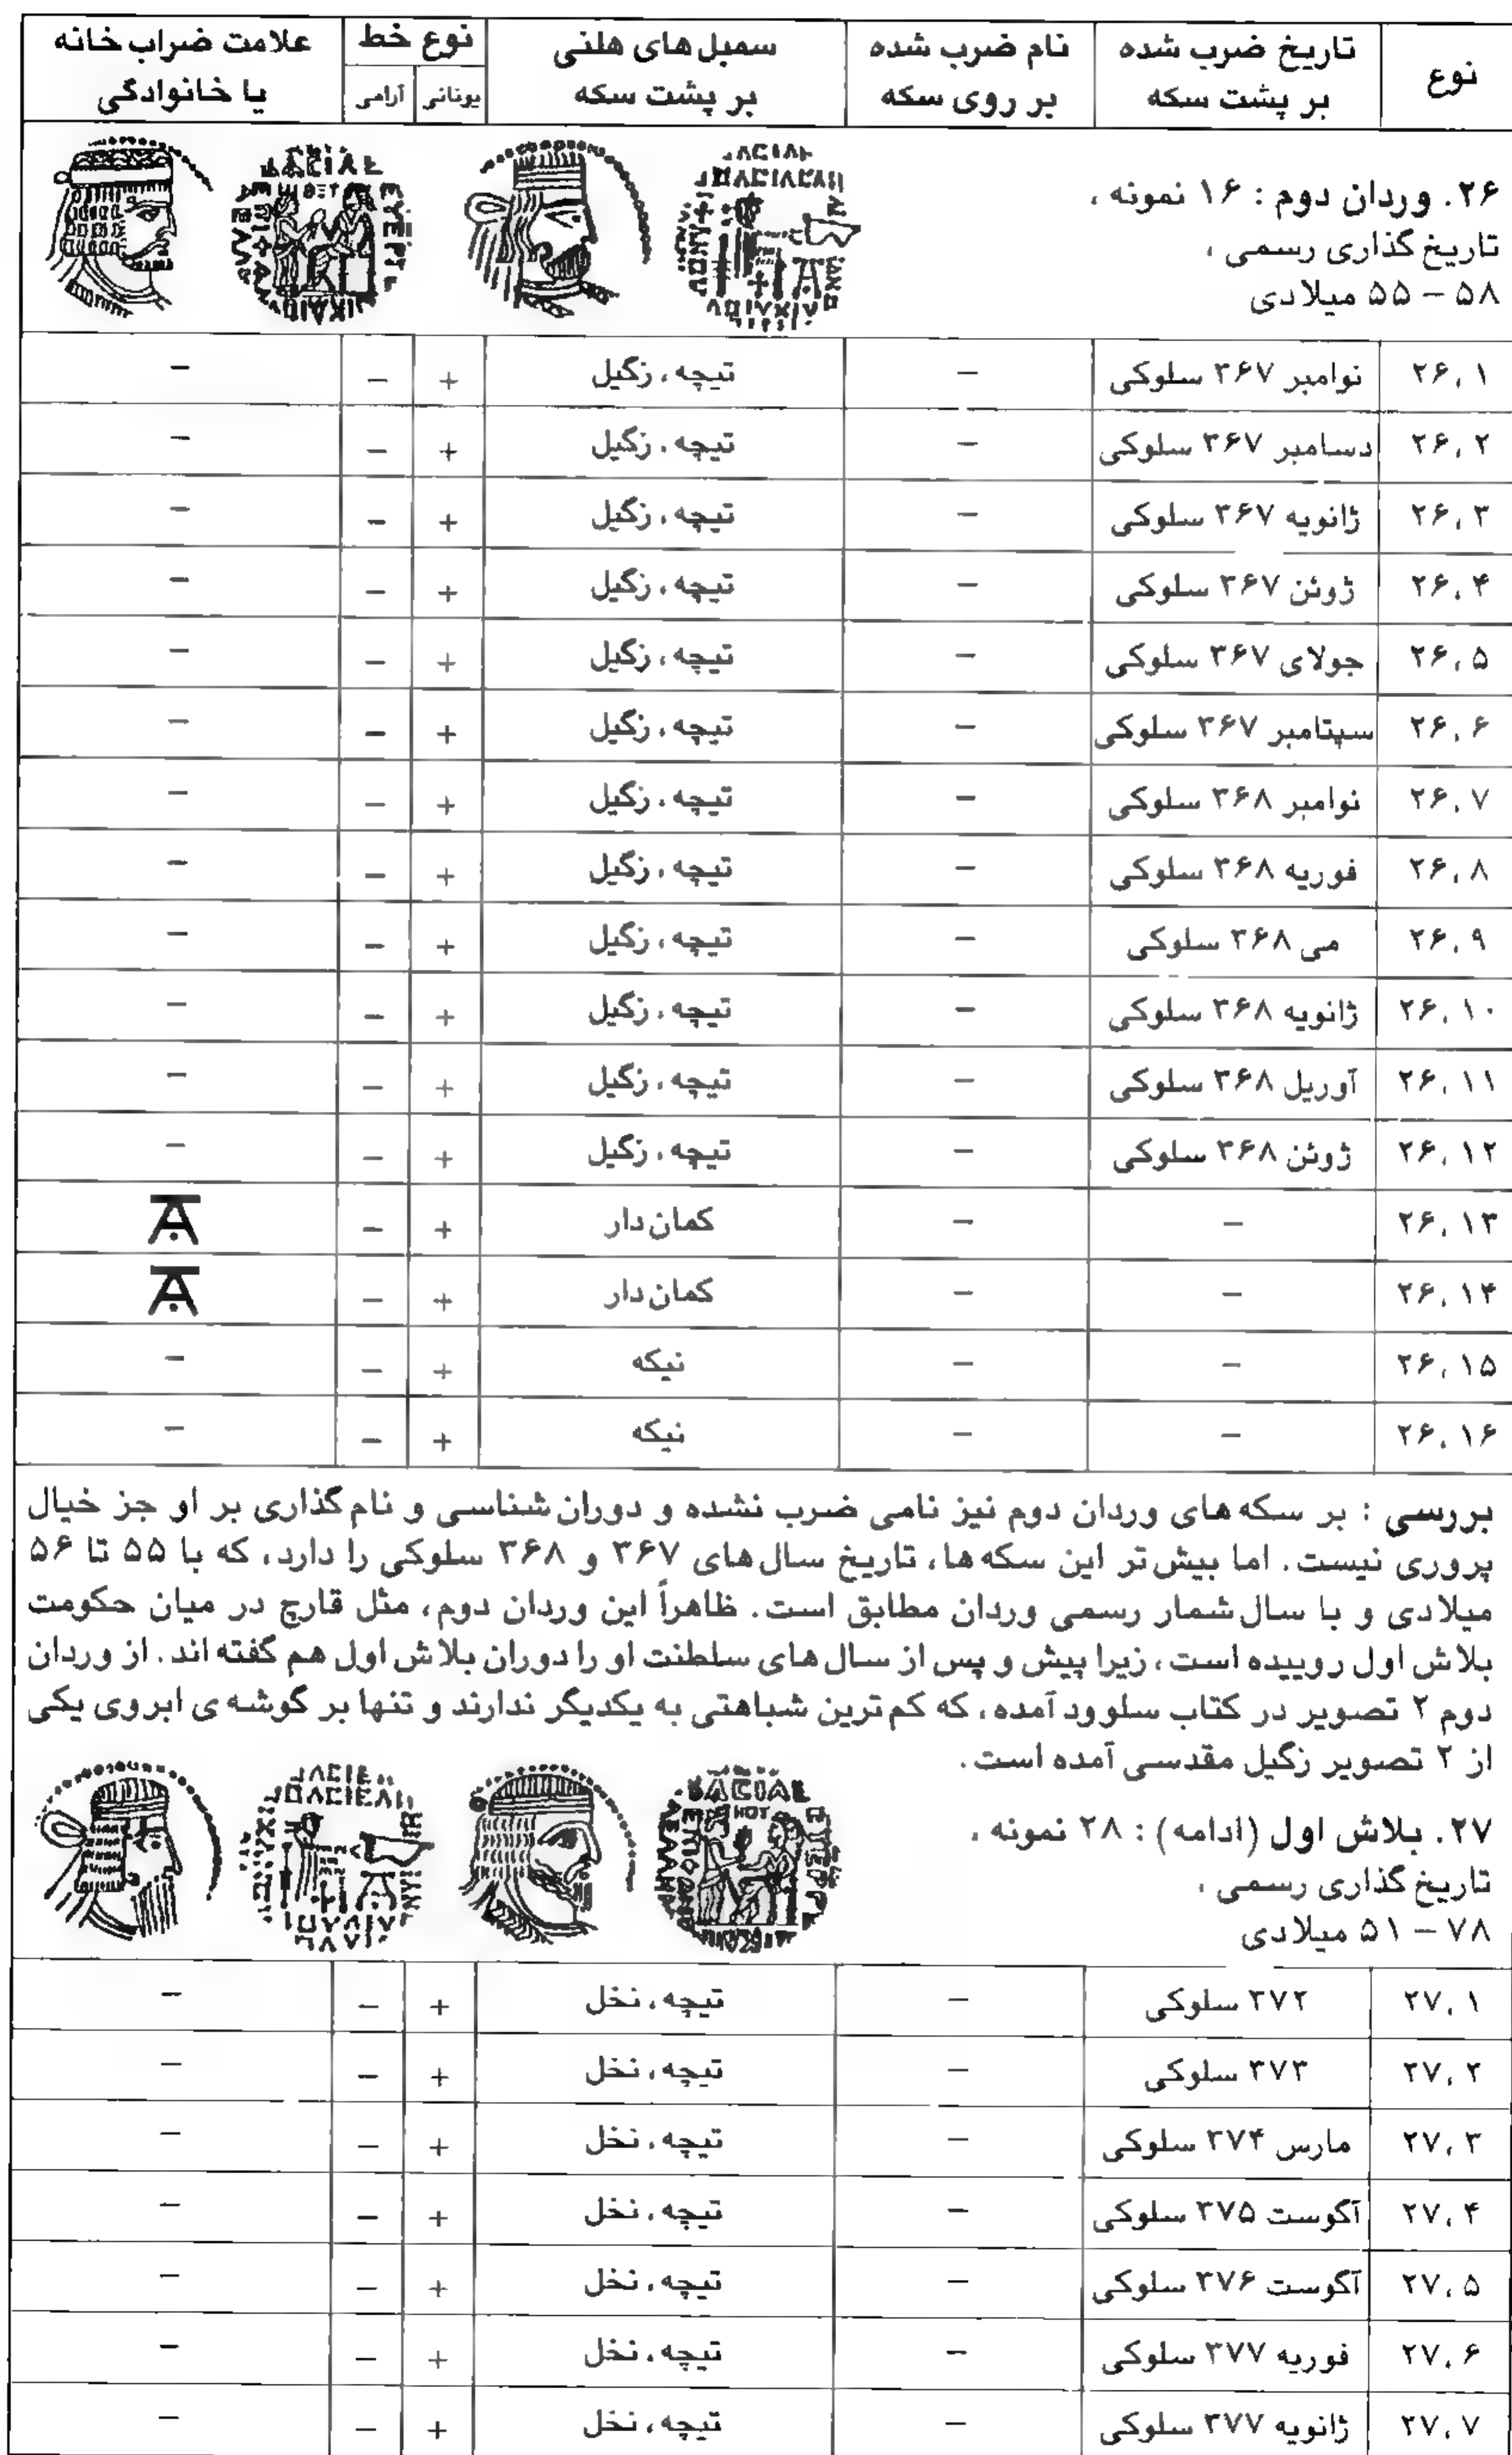 نوع | تاریخ ضرب شده بر پشت سکه | نام ضرب شده بر روی سکه | سمبل های هلنی بر پشت سکه | نوع خط یونانی آرامی | علامت ضراب خانه یا خانوادگی
۲۶. وردان دوم : ۱۶ نمونه ،
تاریخ گذاری رسمی ،
۵۸ – ۵۵ میلادی
۲۶،۱ | نوامبر ۳۶۷ سلوکی | – | تیچه، زگیل | + | – | –
۲۶،۲ | دسامبر ۳۶۷ سلوکی | – | تیچه، زگیل | + | – | –
۲۶،۳ | ژانویه ۳۶۷ سلوکی | – | تیچه، زگیل | + | – | –
۲۶،۴ | ژوئن ۳۶۷ سلوکی | – | تیچه، زگیل | + | – | –
۲۶،۵ | جولای ۳۶۷ سلوکی | – | تیچه، زگیل | + | – | –
۲۶،۶ | سپتامبر ۳۶۷ سلوکی | – | تیچه، زگیل | + | – | –
۲۶،۷ | نوامبر ۳۶۸ سلوکی | – | تیچه، زگیل | + | – | –
۲۶،۸ | فوریه ۳۶۸ سلوکی | – | تیچه، زگیل | + | – | –
۲۶،۹ | می ۳۶۸ سلوکی | – | تیچه، زگیل | + | – | –
۲۶،۱۰ | ژانویه ۳۶۸ سلوکی | – | تیچه، زگیل | + | – | –
۲۶،۱۱ | آوریل ۳۶۸ سلوکی | – | تیچه، زگیل | + | – | –
۲۶،۱۲ | ژوئن ۳۶۸ سلوکی | – | تیچه، زگیل | + | – | –
۲۶،۱۳ | – | – | کمان دار | + | – |
۲۶،۱۴ | – | – | کمان دار | + | – |
۲۶،۱۵ | – | – | نیکه | + | – | –
۲۶،۱۶ | – | – | نیکه | + | – | –
بررسی : بر سکه های وردان دوم نیز نامی ضرب نشده و دوران شناسی و نام گذاری بر او جز خیال
پروری نیست. اما بیش تر این سکه ها، تاریخ سال های ۳۶۷ و ۳۶۸ سلوکی را دارد، که با ۵۵ تا ۵۶
میلادی و با سال شمار رسمی وردان مطابق است. ظاهراً این وردان دوم، مثل قارچ در میان حکومت
بلاش اول روییده است، زیرا پیش و پس از سال های سلطنت او را دوران بلاش اول هم گفته اند. از وردان
دوم ۲ تصویر در کتاب سلوود آمده، که کم ترین شباهتی به یکدیگر ندارند و تنها بر گوشه ی ابروی یکی
از ۲ تصویر زگیل مقدسی آمده است.
۲۷. بلاش اول (ادامه) : ۲۸ نمونه ،
تاریخ گذاری رسمی ،
۷۸ – ۵۱ میلادی
۲۷،۱ | ۳۷۲ سلوکی | – | تیچه، نخل | + | – | –
۲۷،۲ | ۳۷۳ سلوکی | – | تیچه، نخل | + | – | –
۲۷،۳ | مارس ۳۷۴ سلوکی | – | تیچه، نخل | + | – | –
۲۷،۴ | آگوست ۳۷۵ سلوکی | – | تیچه، نخل | + | – | –
۲۷،۵ | آگوست ۳۷۶ سلوکی | – | تیچه، نخل | + | – | –
۲۷،۶ | فوریه ۳۷۷ سلوکی | – | تیچه، نخل | + | – | –
۲۷،۷ | ژانویه ۳۷۷ سلوکی | – | تیچه، نخل | + | – | –